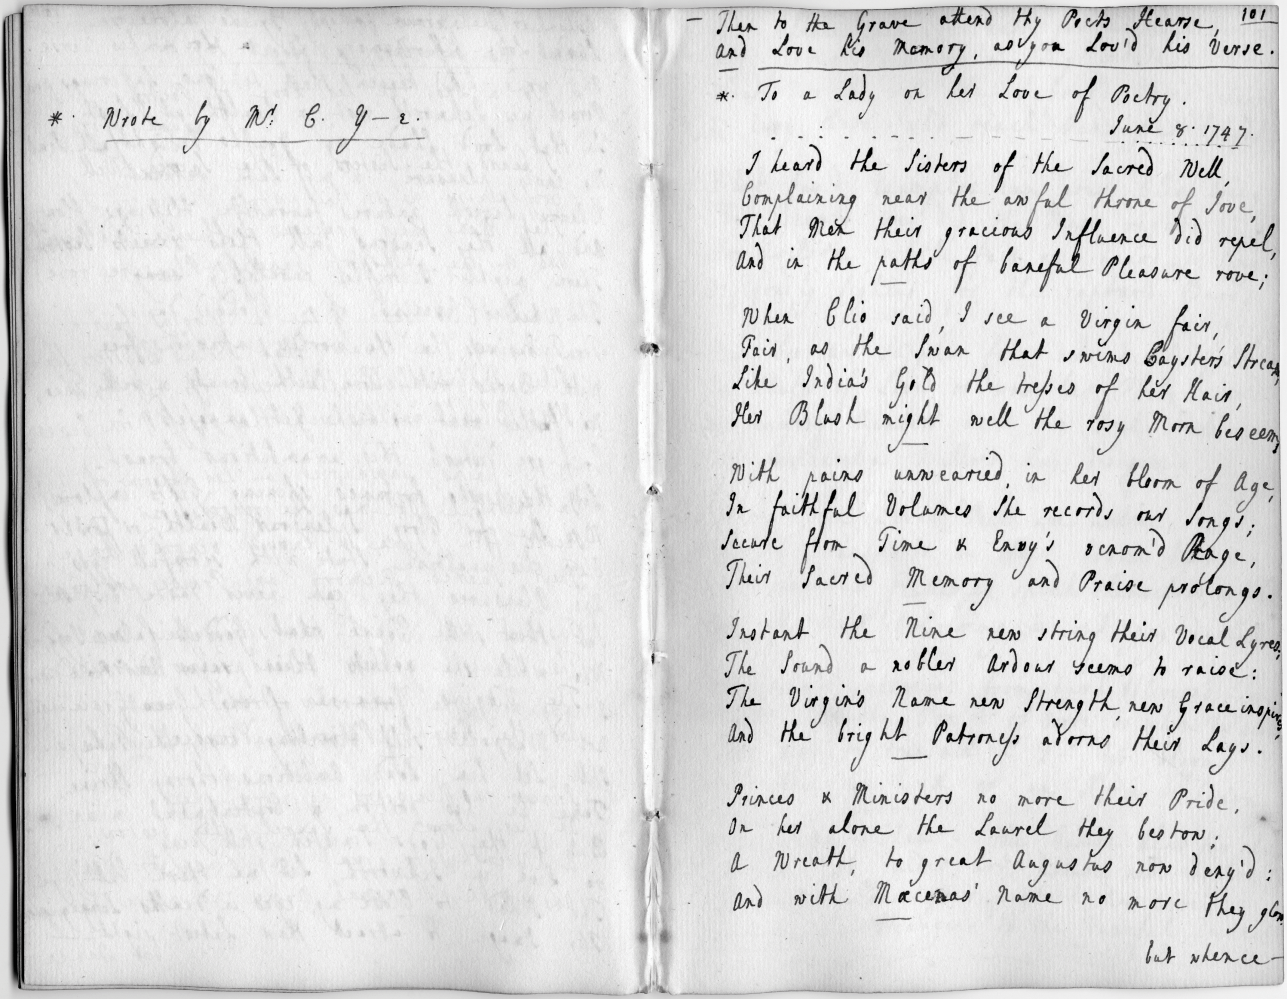 *. Wrote by Mr. C. Y—e.
101
— Then to the Grave attend thy Poets Hearse,
and Love his Memory, as you Lov'd his Verse.
*. To a Lady on her Love of Poetry.
June 8. 1747.
I heard the Sisters of the Sacred Well,
Complaining near the awful throne of Jove,
That Men their gracious Influence did repel,
And in the paths of baneful Pleasure rove;
When Clio said, I see a Virgin fair,
Fair, as the Swan that swims Cayster's Stream
Like India's Gold the tresses of her Hair,
Her Blush might well the rosy Morn beseem,
With pains unwearied, in her bloom of Age,
In faithful Volumes She records our Songs;
Secure from Time & Envy's venom'd Rage,
Their Sacred Memory and Praise prolongs.
Instant the Nine new string their Vocal Lyres;
The Sound a nobler Ardour seems to raise:
The Virgin's Name new Strength, new Grace inspires,
And the bright Patroness adorns their Lays.
Princes & Ministers no more their Pride,
On her alone the Laurel they bestow;
A Wreath, to great Augustus now deny'd:
And with Mæcenas' Name no more they glow.
but whence—